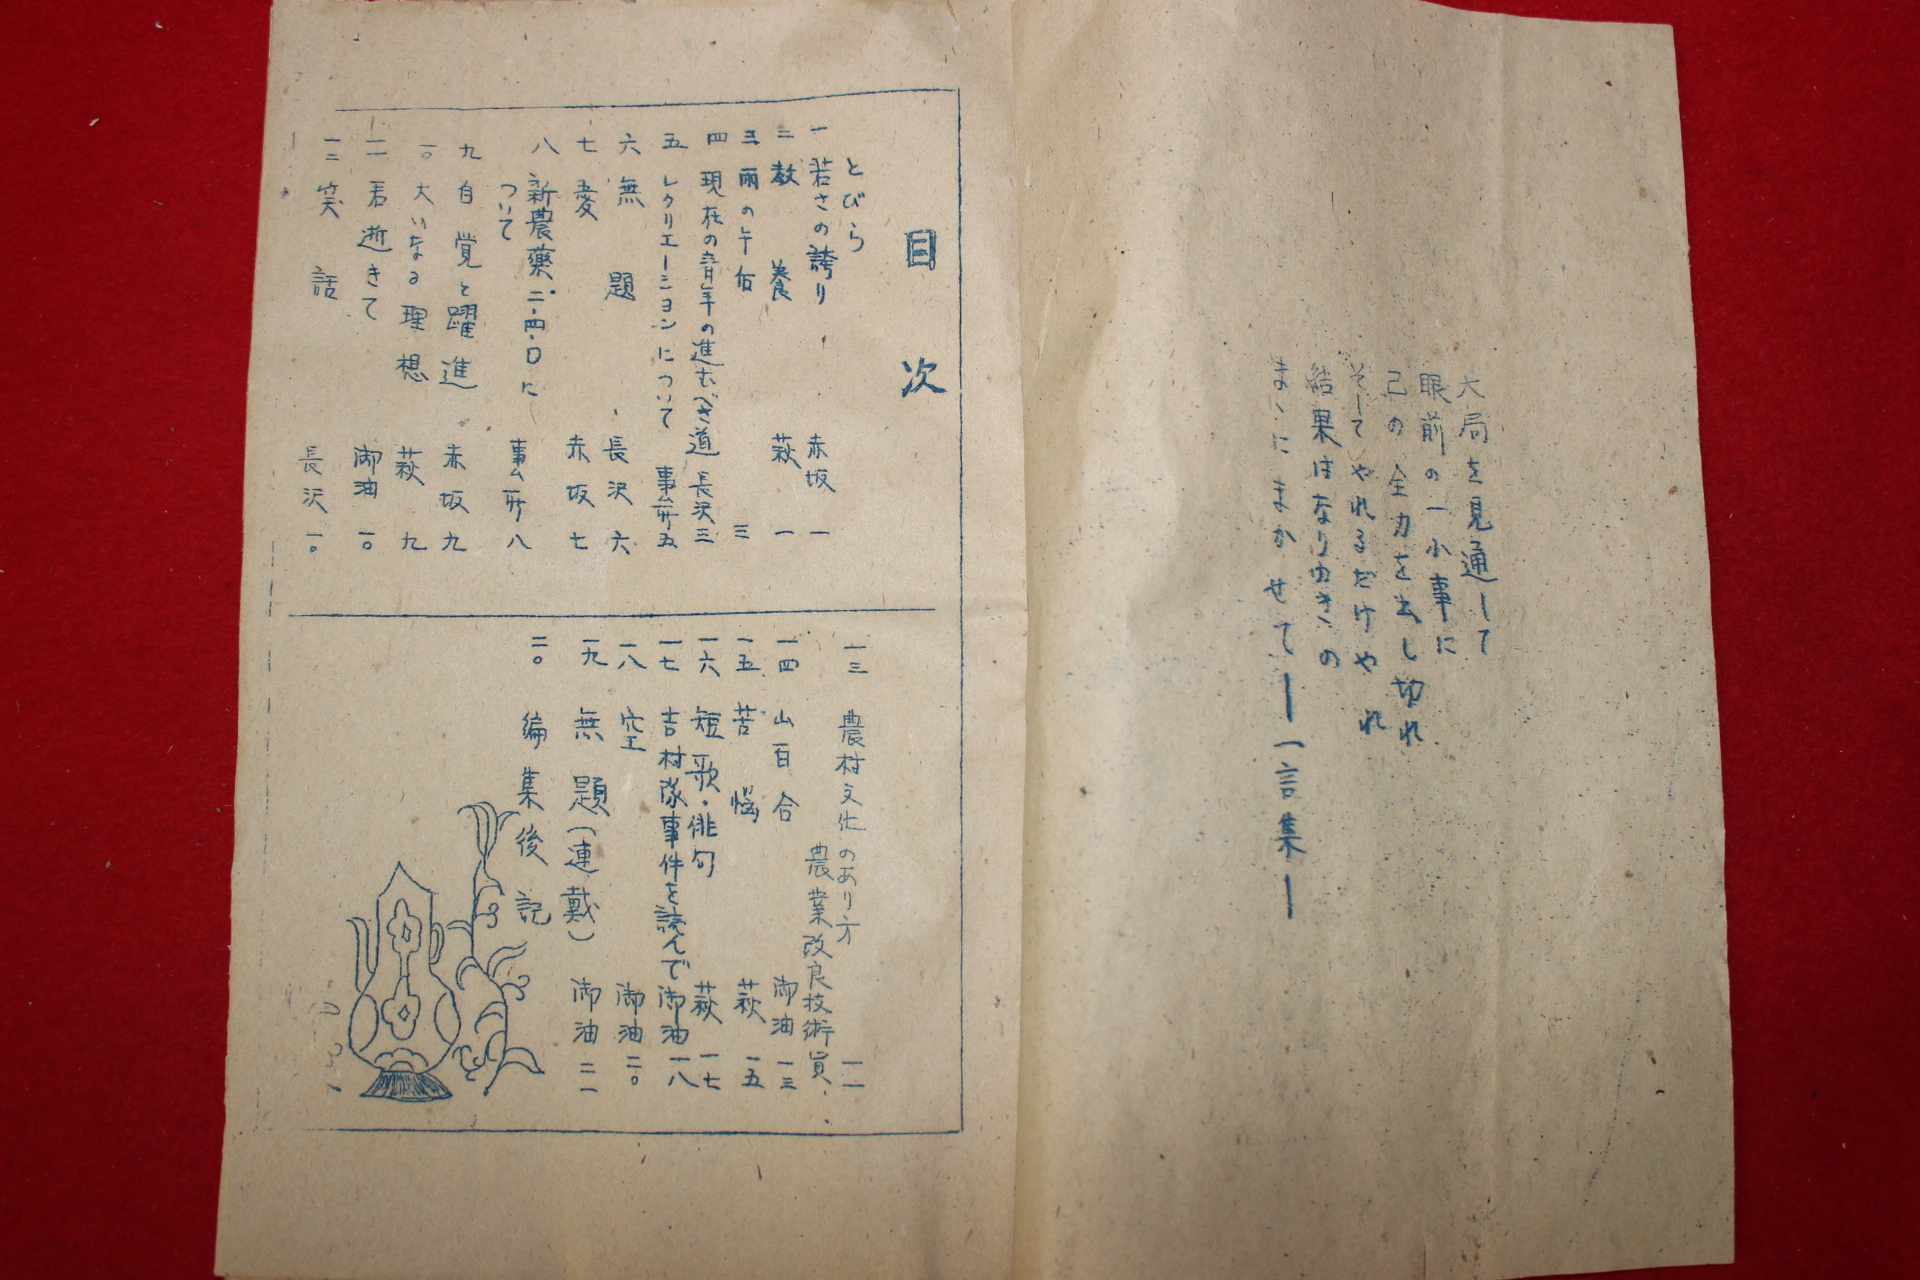 大局を見通して
眼前の一小事に
己の全力を出し切れ
そしてやれるだけやれ
結果はなりゆきの
まゝにまかせて――一言集――
目次
とびら
一 若さの誇り 赤坂 一
二 教養 萩 一
三 雨の午后 三
四 現在の青年の進むべき道 長沢 三
五 レクリエーションについて 事ム所 五
六 無題 長沢 六
七 憂 赤坂 七
八 新農薬、二・四・Dに
ついて 事ム所 八
九 自覚と躍進 赤坂 九
一〇 大いなる理想 萩 九
一一 君逝きて 御油 一〇
一二 笑話 長沢 一〇
一三 農村文化のあり方 一一
農業改良技術員、
一四 山百合 御油 一三
一五 苦悩 萩 一五
一六 短歌・俳句 萩 一七
一七 吉村隊事件を読んで 御油 一八
一八 空 御油 二〇
一九 無題(連戴) 御油 二一
二〇 編集後記